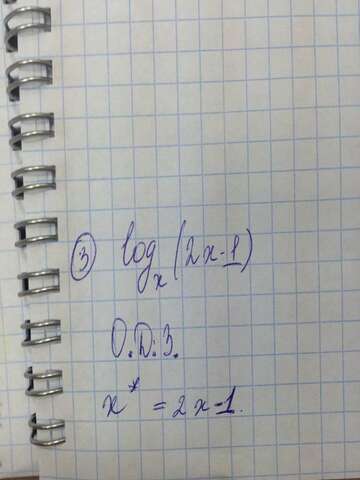 ③ logₓ(2x-1)
О.D.З.
x* = 2x-1.